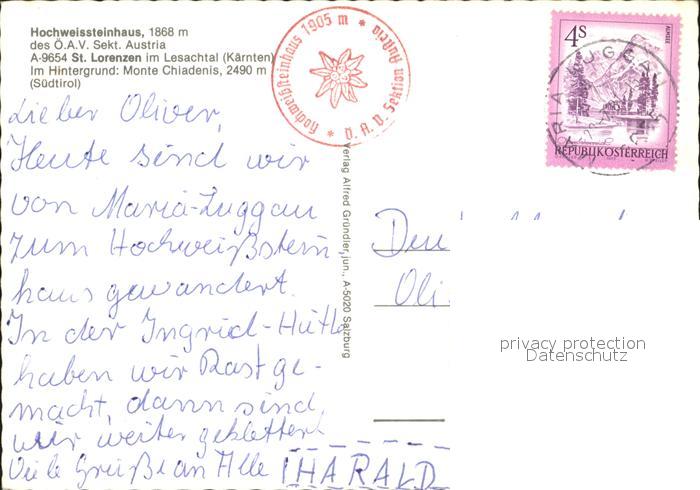 Hochweissteinhaus, 1868 m
des Ö.A.V. Sekt. Austria
A-9654 St. Lorenzen im Lesachtal (Kärnten)
Im Hintergrund: Monte Chiadenis, 2490 m
(Südtirol)
Hochweißsteinhaus 1905 m * Ö.A.V. Sektion Austria *
4S
ALMSEE
REPUBLIK ÖSTERREICH
MARIA LUGGAU
Lieber Oliver,
Heute sind wir
von Maria-Luggau
zum Hochweißstein
haus gewandert.
In der Ingrid-Hütte
haben wir Rast ge-
macht, dann sind
wir weiter geklettert
Viele Grüße an Alle HARALD
Verlag Alfred Gründler, jun., A-5020 Salzburg
Oli
privacy protection
Datenschutz